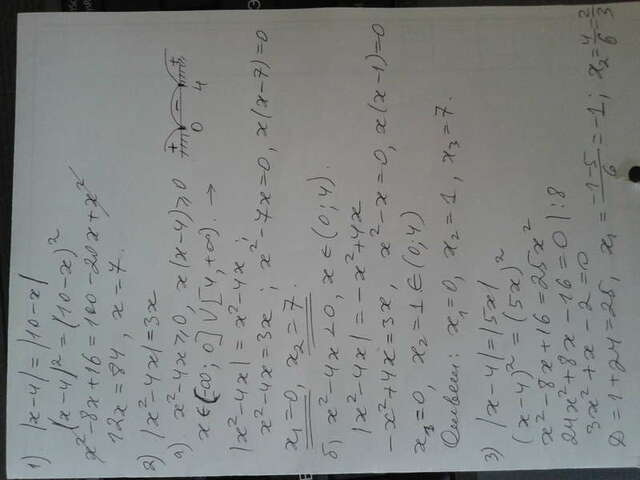 1) |x-4| = |10-x|
(x-4)² = (10-x)²
x²-8x+16=100-20x+x²
12x=84, x=7.
2) |x²-4x|=3x
а) x²-4x≥0, x(x-4)≥0 + - + 0 4
x∈(-∞; 0]∪[4, +∞). →
|x²-4x| = x²-4x;
x²-4x=3x; x²-7x=0, x(x-7)=0
x₁=0, x₂=7.
б) x²-4x<0, x∈(0;4).
|x²-4x| = -x²+4x
-x²+4x=3x, x²-x=0, x(x-1)=0
x₁=0, x₂=1∈(0;4)
Ответ: x₁=0, x₂=1, x₃=7.
3) |x-4|=|5x|
(x-4)²=(5x)²
x²-8x+16=25x²
24x²+8x-16=0 |:8
3x²+x-2=0
D=1+24=25, x₁=(-1-5)/6=-1; x₂=4/6=2/3